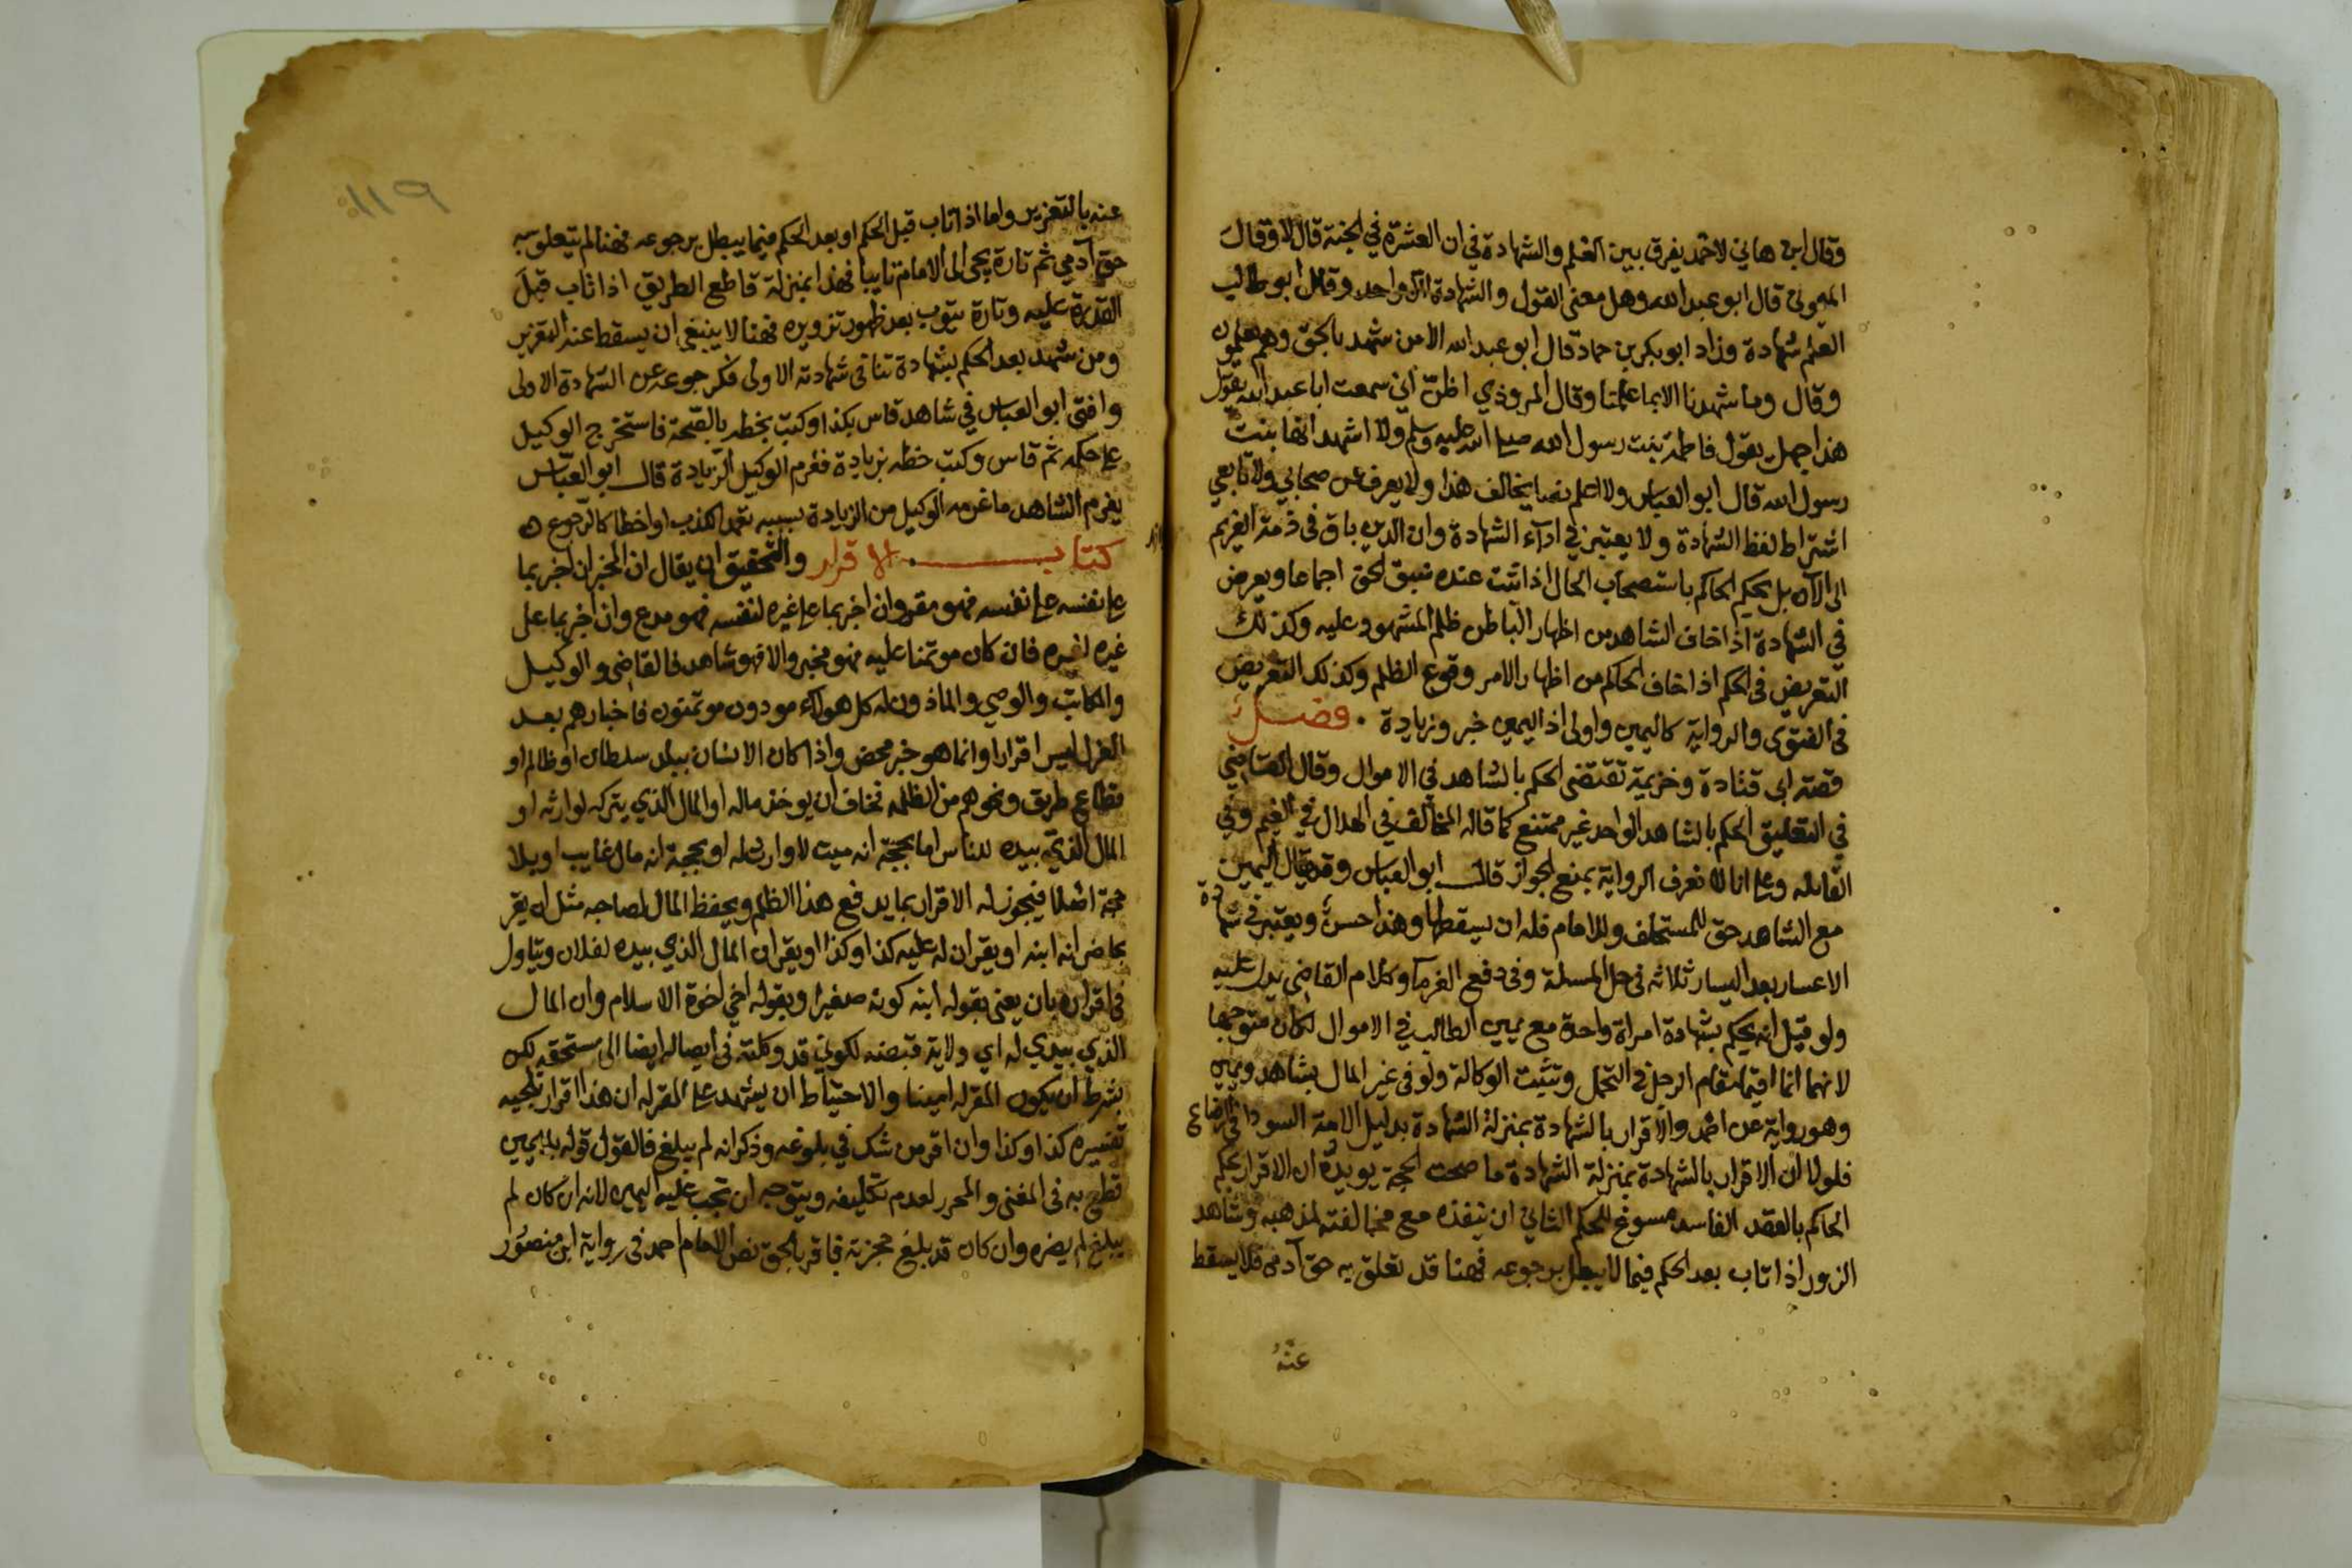 وقال ابن هاني لاحمد يفرق بين العلم والشهادة في ان العشرة في الجنة قال لا وقال
الميموني قال ابو عبد الله وهل معنى القول والشهادة الا واحد وقال ابو طالب
العلم شهادة وزاد ابو بكر بن حماد قال ابو عبد الله الا من شهد بالحق وهم يعلمون
وقال وما شهدنا الا بما علمنا وقال المروذي اظن اني سمعت ابا عبد الله يقول
هذا جهل يقول فاطمة بنت رسول الله صلى الله عليه وسلم ولا اشهد انها بنت
رسول الله قال ابو العباس ولا اعلم نصا يخالف هذا ولا يعرف عن صحابي ولا تابعي
اشتراط لفظ الشهادة ولا يعتبر في اداء الشهادة وان الدين باق في ذمة الغريم
الى الآن بل يحكم الحاكم باستصحاب الحال اذا ثبت عنده سبق الحق اجماعا ويعرض
في الشهادة اذا خاف الشاهد من اظهار الباطن ظلم المشهود عليه وكذلك
التعريض في الحكم اذا خاف الحاكم من اظهار الامر وقوع الظلم وكذلك التعريض
في الفتوى والرواية كاليمين واولى اذ اليمين خبر وزيادة . فصل
قصة ابي قتادة وخزيمة تقتضي الحكم بالشاهد في الاموال وقال القاضي
في التعليق الحكم بالشاهد الواحد غير ممتنع كما قاله المخالف في الهلال في الغيم وفي
القابلة وعلى انا لا نعرف الرواية بمنع الجواز قال ابو العباس وقد يقال اليمين
مع الشاهد حق للمستحلف وللامام فله ان يسقطها وهذا حسن ويعتبر في شهادة
الاعسار بعد اليسار ثلاثة في حل المسلة وفي دفع الغرما وكلام القاضي يدل عليه
ولو قيل انه يحكم بشهادة امراة واحدة مع يمين الطالب في الاموال لكان متوجها
لانهما انما اقيما مقام الرجل في التحمل وتثبت الوكالة ولو في غير المال بشاهد ويمين
وهو رواية عن احمد والاقرار بالشهادة بمنزلة الشهادة بدليل الامة السودا في الرضاع
فلولا ان الاقرار بالشهادة بمنزلة الشهادة ما صحت الحجة يويده ان الاقرار بحكم
الحاكم بالعقد الفاسد مسوغ للحكم الثاني ان ينفذه مع مخالفته لمذهبه وشاهد
الزور اذا تاب بعد الحكم فيما لا يبطل برجوعه فهنا قد تعلق به حق آدمي فلا يسقط
عنه
١١٩
عنه بالتعزير واما اذا تاب قبل الحكم او بعد الحكم فيما يبطل برجوعه فهنا لم يتعلق به
حق آدمي ثم تارة يجي الى الامام تايبا فهذا بمنزلة قاطع الطريق اذا تاب قبل
القدرة عليه وتارة يتوب بعد ظهور تزويره فهنا لا ينبغي ان يسقط عنه التعزير
ومن شهد بعد الحكم بشهادة تنافي شهادته الاولى فكرجوعه عن الشهادة الاولى
وافتى ابو العباس في شاهد قاس بكذا وكتب بخطه بالصحة فاستخرج الوكيل
على حكمه ثم قاس وكتب خطه بزيادة فغرم الوكيل الزيادة قال ابو العباس
يغرم الشاهد ما غرمه الوكيل من الزيادة بسببه تعمد الكذب او اخطا كالرجوع ه
كتاب الاقرار والتحقيق ان يقال ان المخبر ان اخبر بما
على نفسه على نفسه فهو مقر وان اخبر بما على غيره لنفسه فهو مدع وان اخبر بما على
غيره لغيره فان كان موتمنا عليه فهو مخبر والا فهو شاهد فالقاضي والوكيل
والكاتب والوصي والماذون له كل هولاء مودون موتمنون فاخبارهم بعد
العزل ليس اقرارا وانما هو خبر محض واذا كان الانسان ببلد سلطان او ظالم او
قطاع طريق ونحوهم من الظلمة فخاف ان يوخذ ماله او المال الذي يتركه لوارثه او
المال الذي بيده للناس اما بحجة انه ميت لا وارث له او بحجة انه مال غايب او بلا
حجة اصلا فيجوز له الاقرار بما يدفع هذا الظلم ويحفظ المال لصاحبه مثل ان يقر
بحاضر انه ابنه او يقر ان له عليه كذا وكذا او يقر ان المال الذي بيده لفلان ويتاول
في اقراره بان يعني بقوله ابنه كونه صغيرا وبقوله اخي اخوة الاسلام وان المال
الذي بيدي له اي ولاية قبضه لكوني قد وكلته في ايصاله ايضا الى مستحقه لكن
بشرط ان يكون المقر له امينا والاحتياط ان يشهد على المقر له ان هذا اقرار تلجيه
تفسيره كذا وكذا وان اقر من شك في بلوغه وذكر انه لم يبلغ فالقول قوله بلا يمين
قطع به في المغني والمحرر لعدم تكليفه ويتوجه ان تجب عليه اليمين لانه ان كان لم
يبلغ لم يضره وان كان قد بلغ حجزته فاقر بالحق نص الامام احمد في رواية ابن منصور